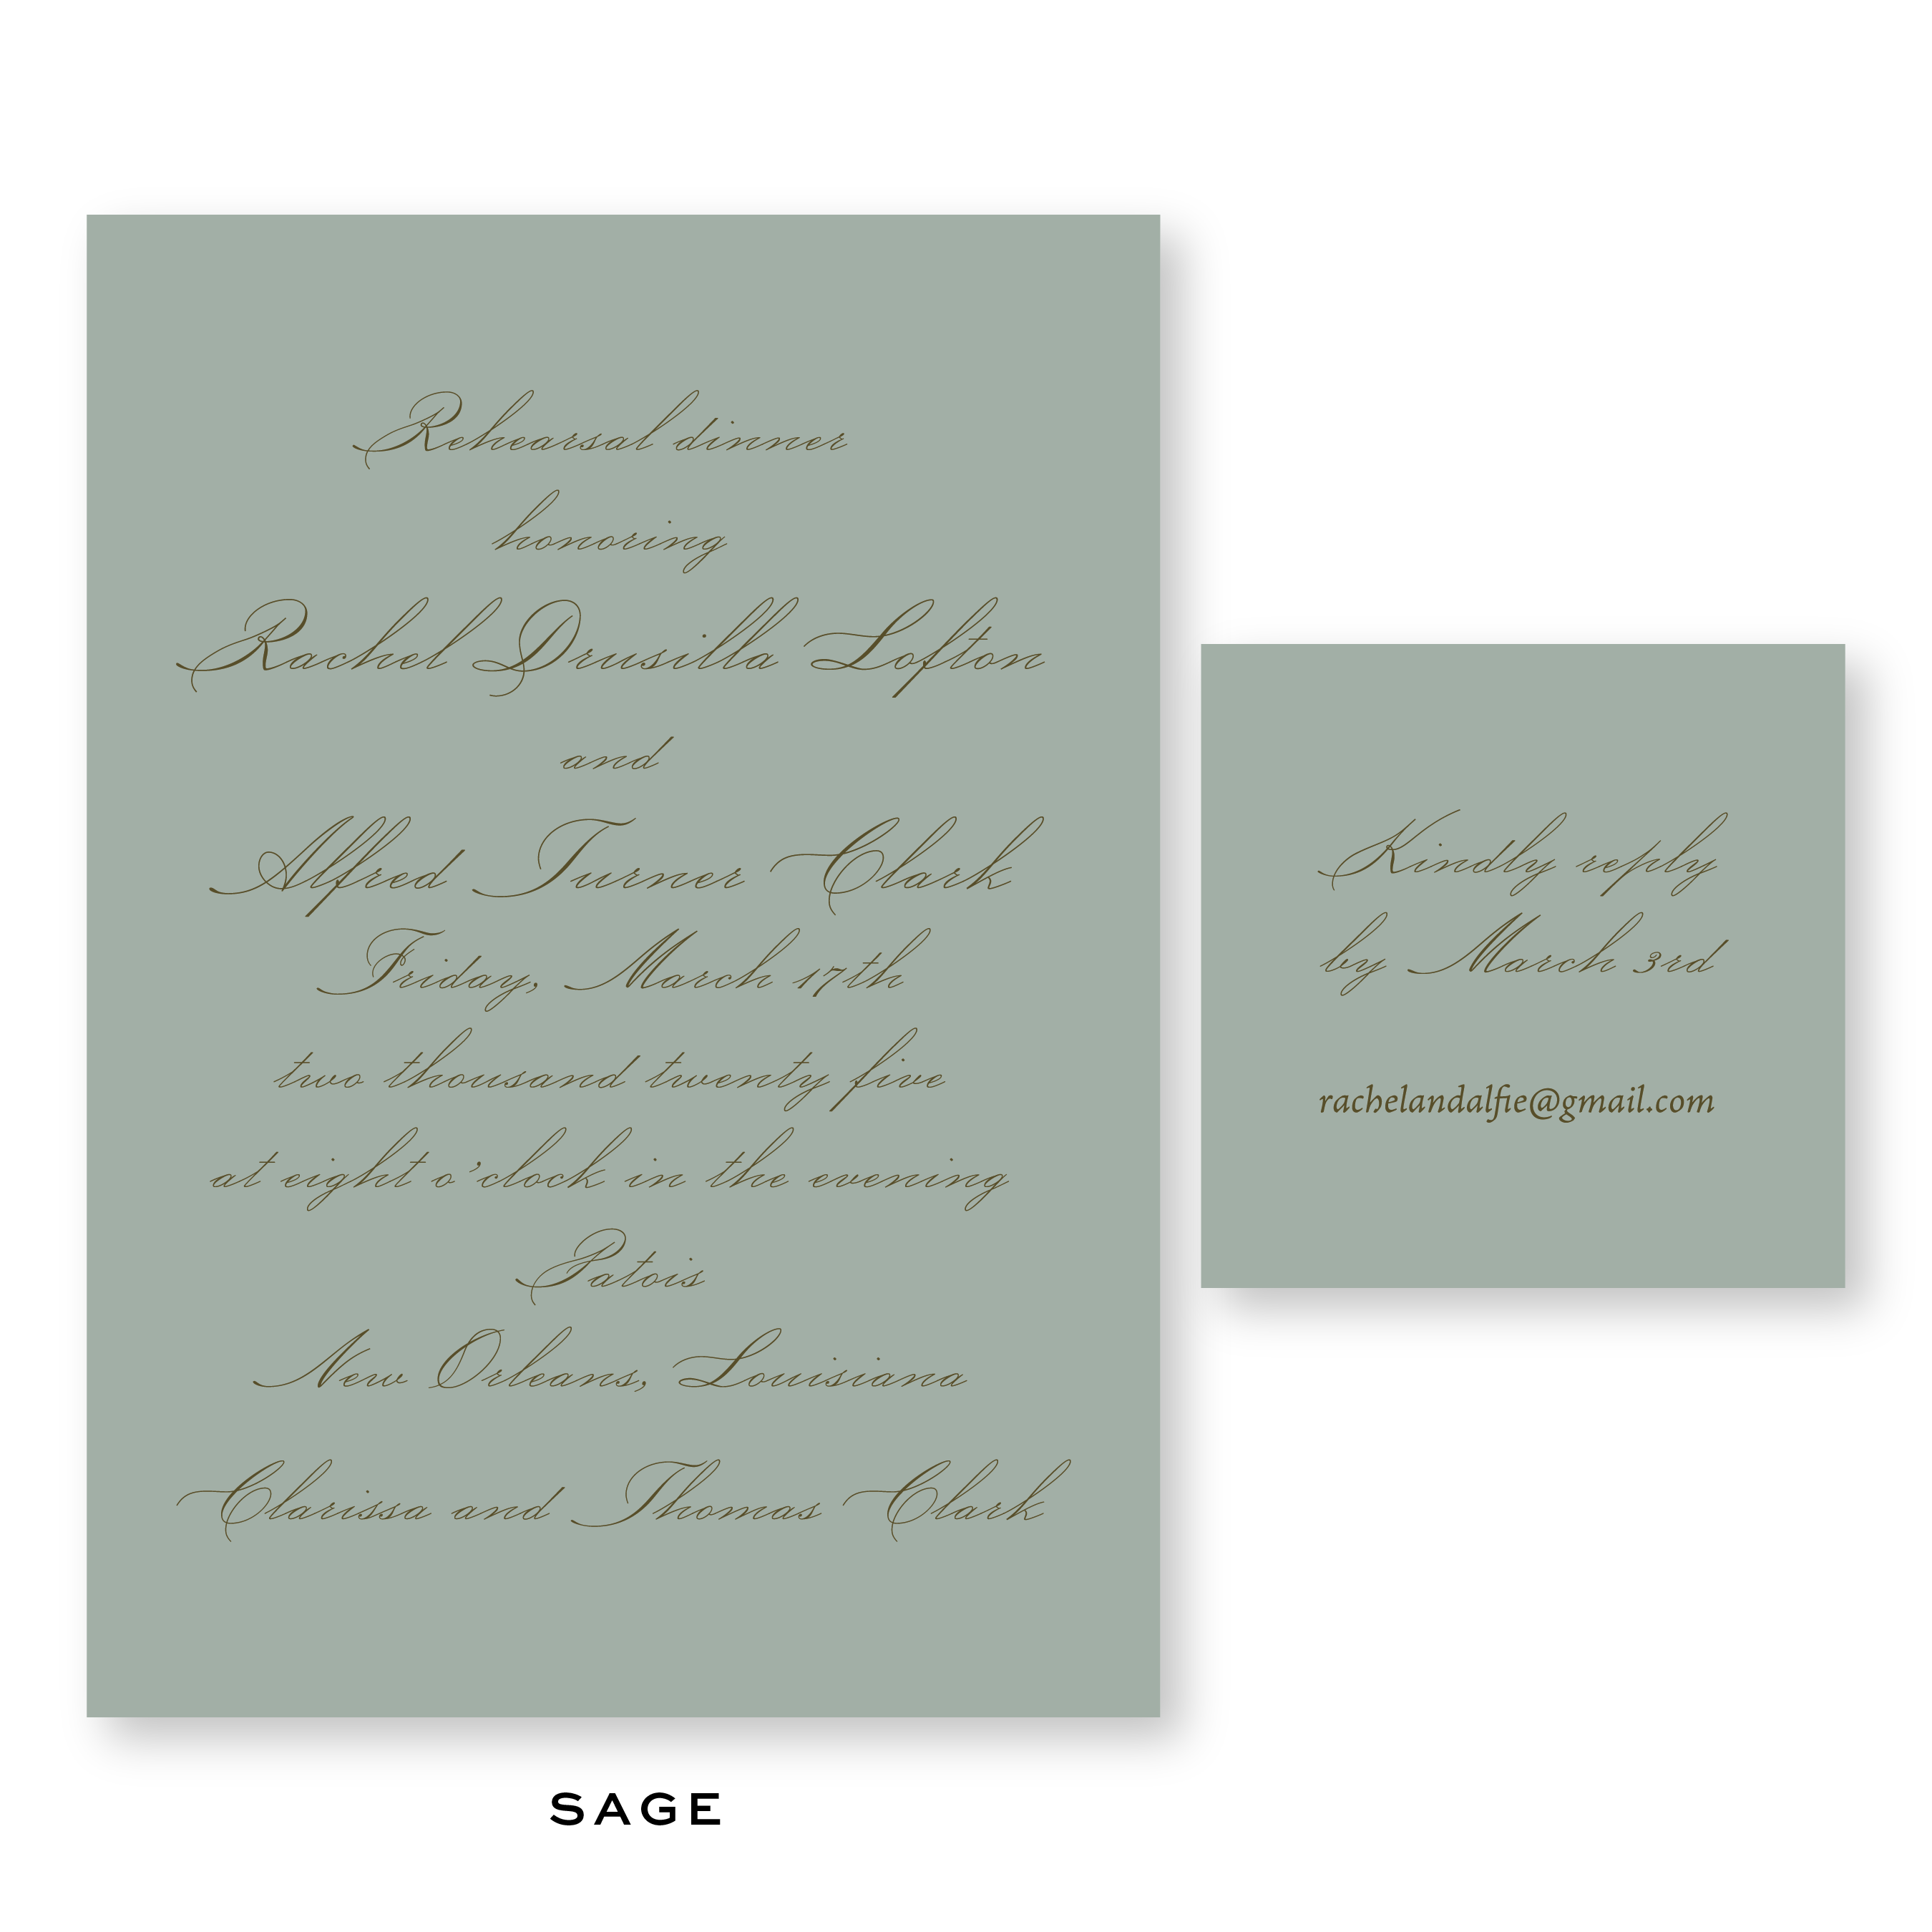 Rehearsal dinner
honoring
Rachel Drusilla Lofton
and
Alfred Turner Clark
Friday, March 17th
two thousand twenty five
at eight o'clock in the evening
Patois
New Orleans, Louisiana
Clarissa and Thomas Clark
Kindly reply
by March 3rd
rachelandalfie@gmail.com
SAGE